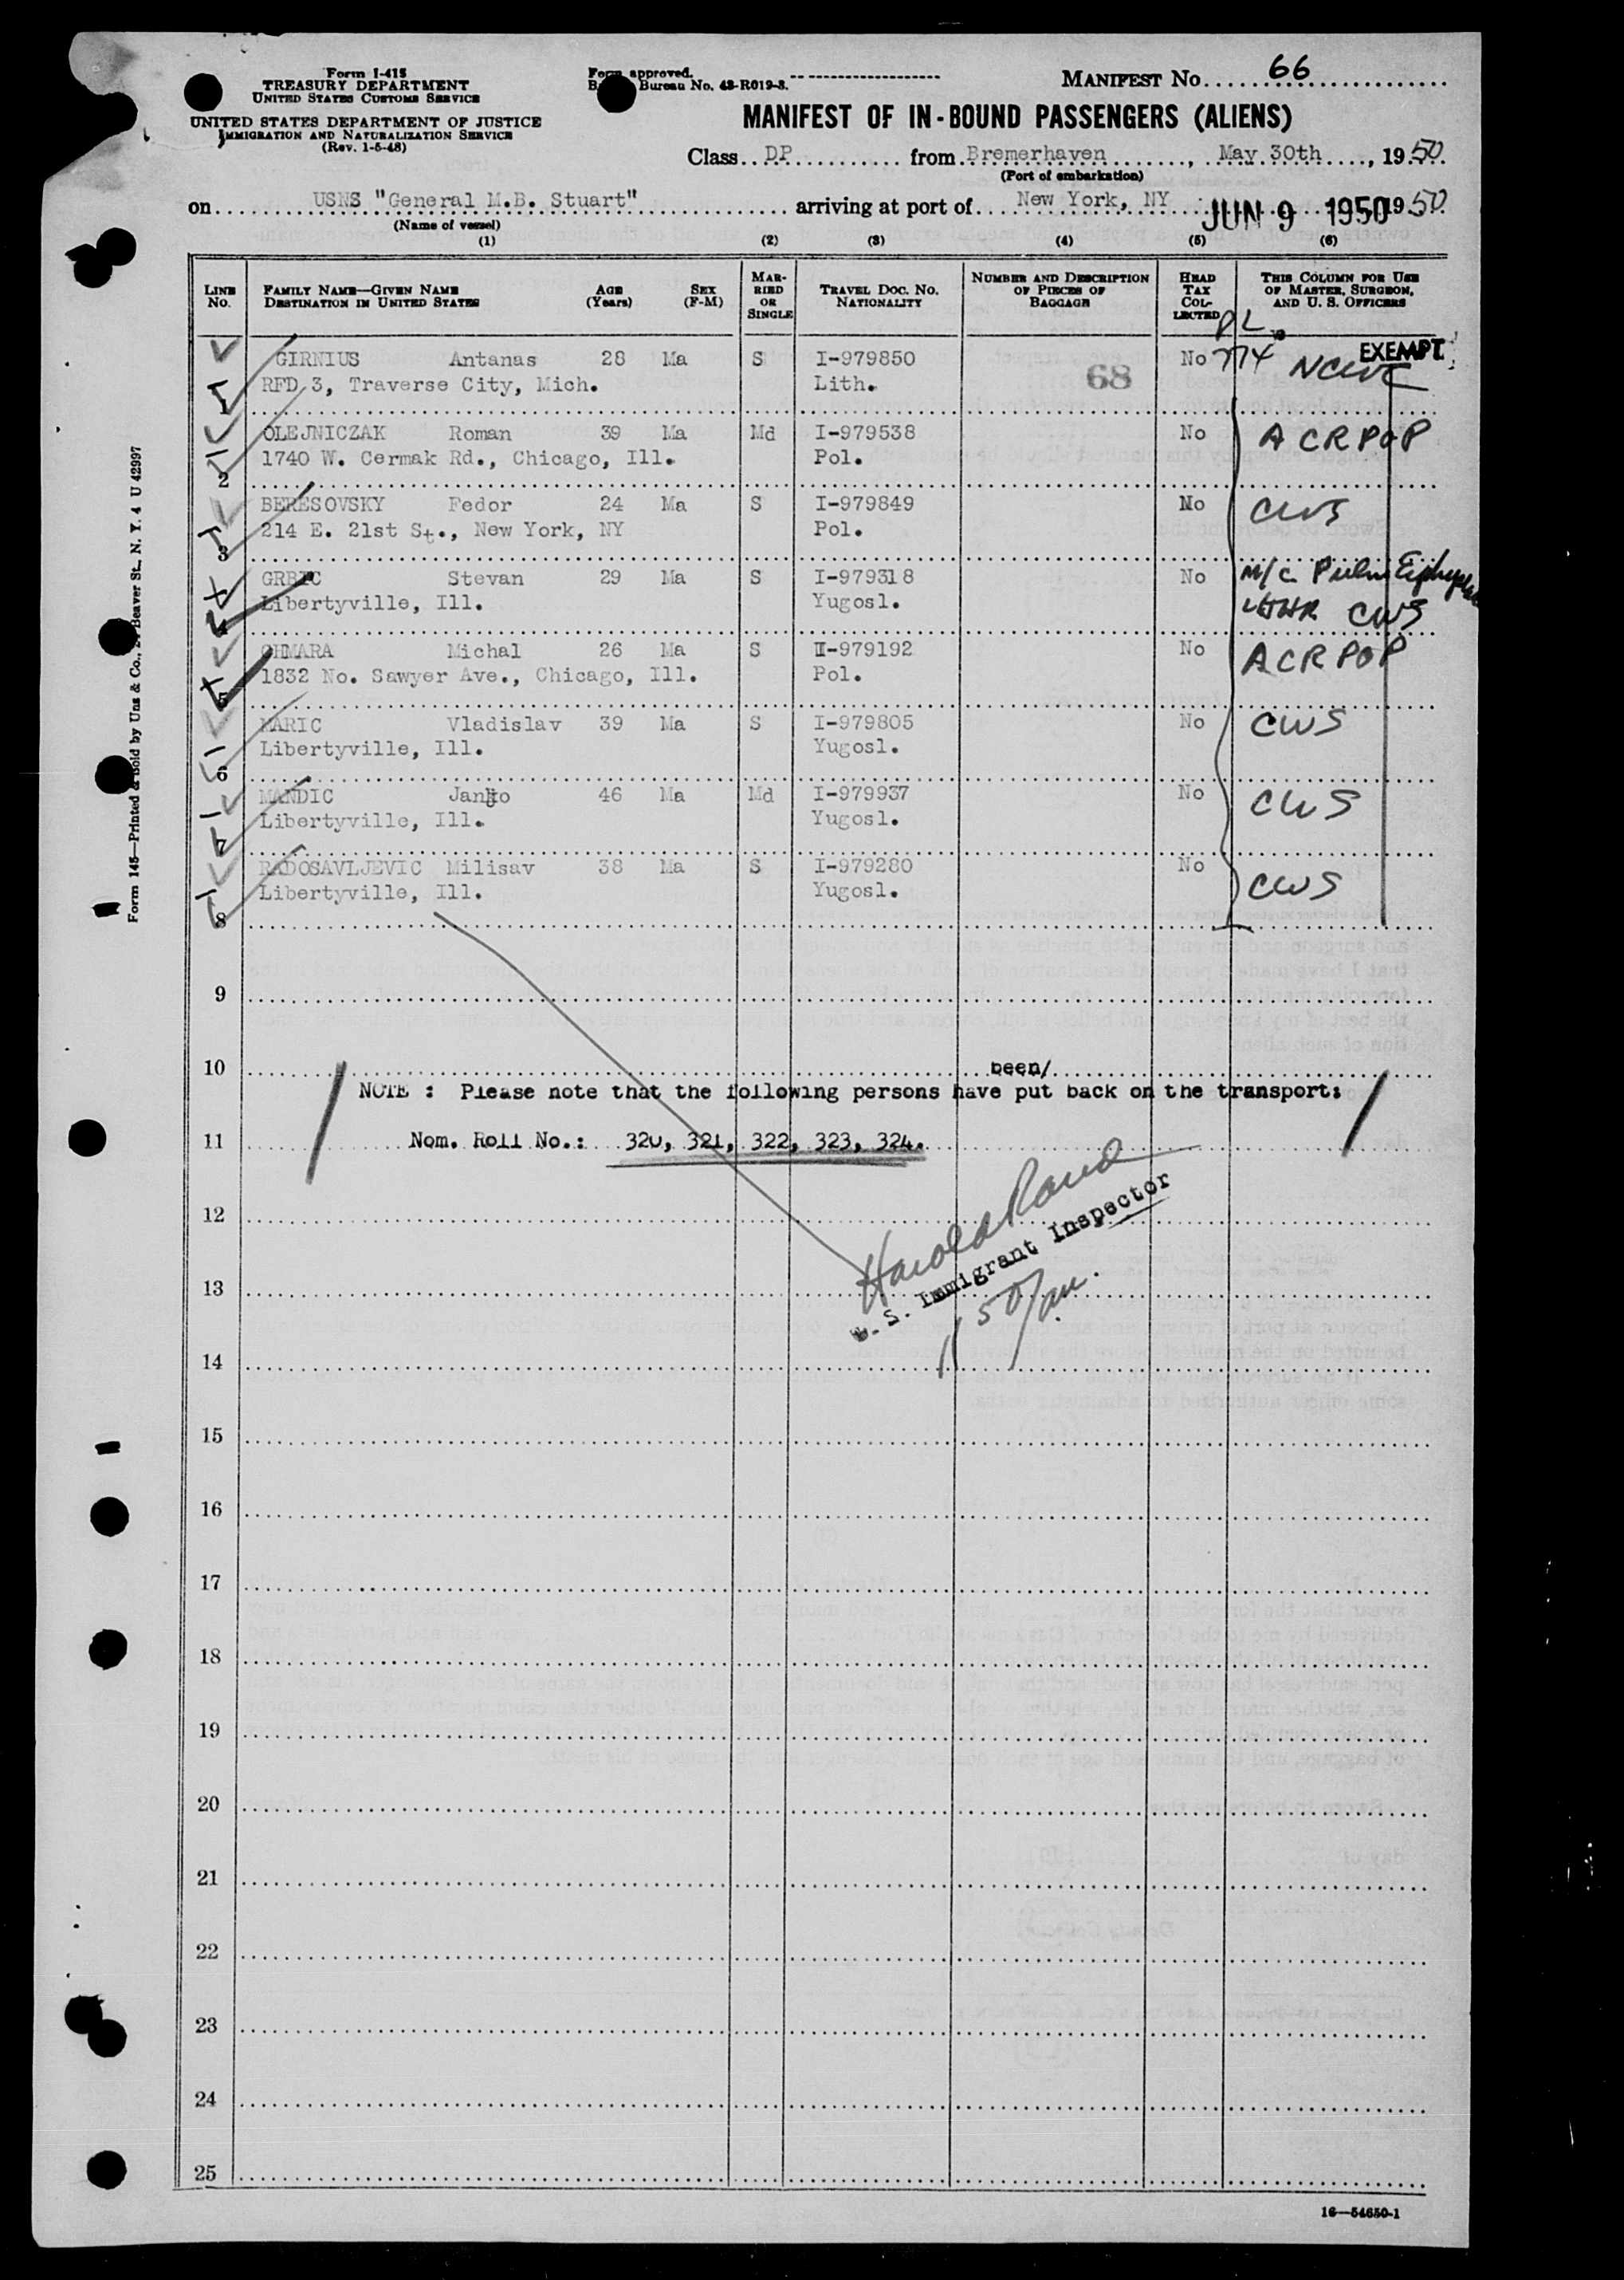 Form I-415
TREASURY DEPARTMENT
UNITED STATES CUSTOMS SERVICE
UNITED STATES DEPARTMENT OF JUSTICE
IMMIGRATION AND NATURALIZATION SERVICE
(Rev. 1-5-48)
Form approved.
Bureau No. 43-R019-3.
MANIFEST No. 66
MANIFEST OF IN-BOUND PASSENGERS (ALIENS)
Class DP from Bremerhaven, May 30th, 1950
(Port of embarkation)
on USNS "General M.B. Stuart" arriving at port of New York, NY JUN 9 1950 1950
(Name of vessel)
(1) (2) (3) (4) (5) (6)
LINE No. FAMILY NAME—GIVEN NAME DESTINATION IN UNITED STATES AGE (Years) SEX (F-M) MARRIED OR SINGLE TRAVEL DOC. NO. NATIONALITY NUMBER AND DESCRIPTION OF PIECES OF BAGGAGE HEAD TAX COLLECTED THIS COLUMN FOR USE OF MASTER, SURGEON, AND U. S. OFFICERS
GIRNIUS Antanas 28 Ma S I-979850 No EXEMPT
1 RFD 3, Traverse City, Mich. Lith. 68 NCWC
OLEJNICZAK Roman 39 Ma Md I-979538 No A C R P O P
2 1740 W. Cermak Rd., Chicago, Ill. Pol.
BERESOVSKY Fedor 24 Ma S I-979849 No CWS
3 214 E. 21st St., New York, NY Pol.
GRBIC Stevan 29 Ma S I-979318 No M/C
4 Libertyville, Ill. Yugosl. CWS
CHMARA Michal 26 Ma S I-979192 No A C R P O P
5 1832 No. Sawyer Ave., Chicago, Ill. Pol.
MARIC Vladislav 39 Ma S I-979805 No CWS
6 Libertyville, Ill. Yugosl.
MANDIC Janko 46 Ma Md I-979937 No CWS
7 Libertyville, Ill. Yugosl.
RADOSAVLJEVIC Milisav 38 Ma S I-979280 No CWS
8 Libertyville, Ill. Yugosl.
9
10
been/
NOTE : Please note that the following persons have put back on the transport:
11 Nom. Roll No.: 320, 321, 322, 323, 324.
12
Harold Rand
U. S. Immigrant Inspector
13
14
15
16
17
18
19
20
21
22
23
24
25
16—54650-1